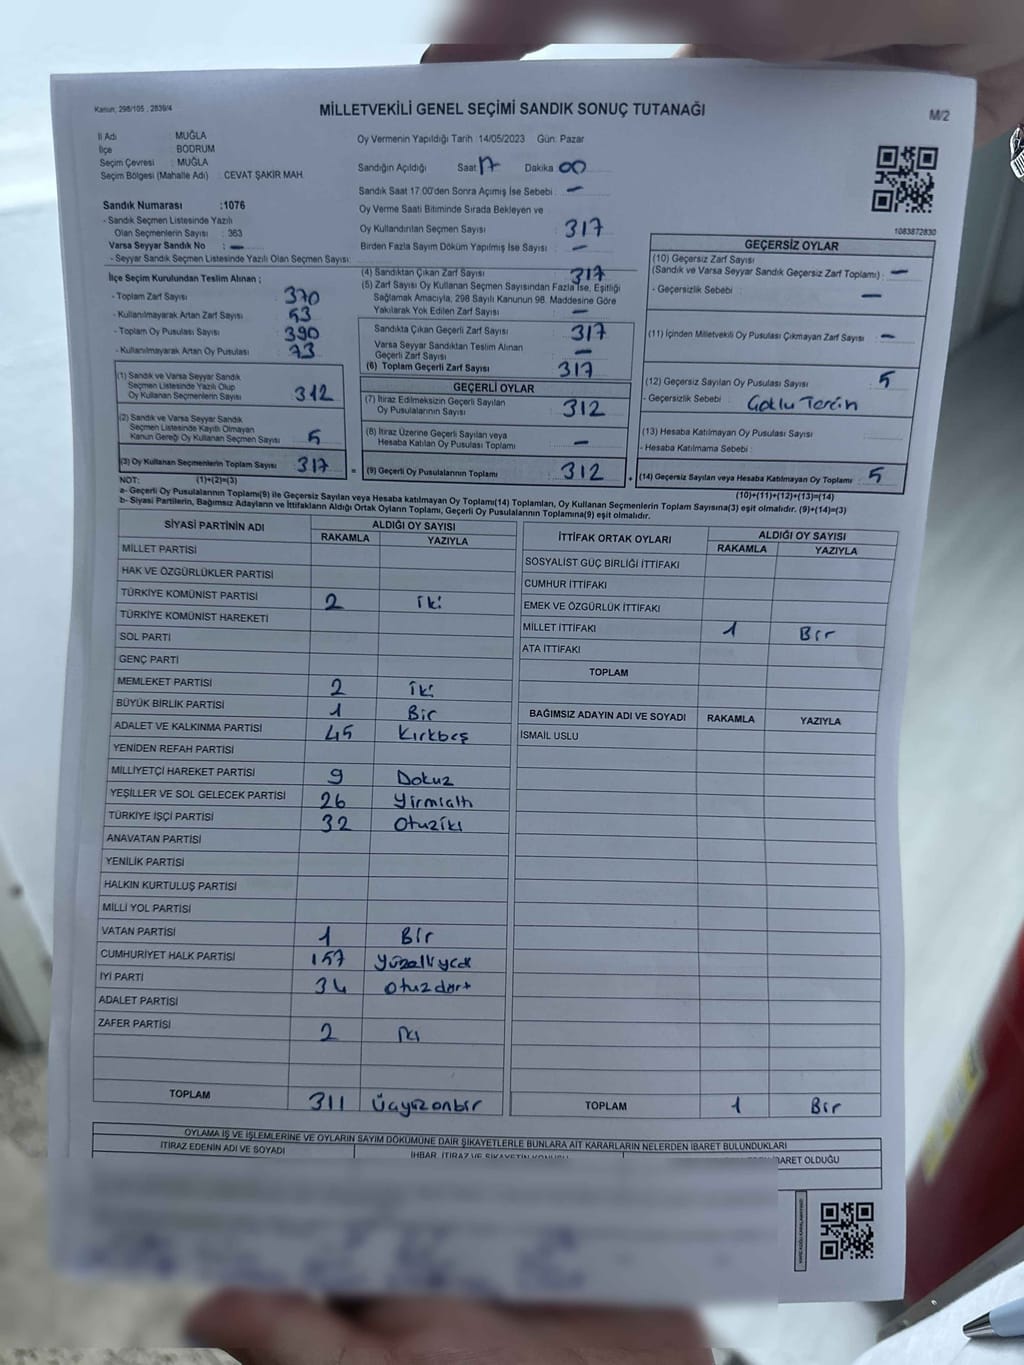 Kanun: 298/105 , 2839/4
MİLLETVEKİLİ GENEL SEÇİMİ SANDIK SONUÇ TUTANAĞI
M/2
İl Adı : MUĞLA
İlçe : BODRUM
Seçim Çevresi : MUĞLA
Seçim Bölgesi (Mahalle Adı) : CEVAT ŞAKİR MAH.
Sandık Numarası :1076
- Sandık Seçmen Listesinde Yazılı
Olan Seçmenlerin Sayısı : 363
Varsa Seyyar Sandık No : —
- Seyyar Sandık Seçmen Listesinde Yazılı Olan Seçmen Sayısı:
İlçe Seçim Kurulundan Teslim Alınan ;
- Toplam Zarf Sayısı : 370
- Kullanılmayarak Artan Zarf Sayısı : 53
- Toplam Oy Pusulası Sayısı : 390
- Kullanılmayarak Artan Oy Pusulası : 73
(1) Sandık ve Varsa Seyyar Sandık
Seçmen Listesinde Yazılı Olup
Oy Kullanan Seçmenlerin Sayısı : 312
(2) Sandık ve Varsa Seyyar Sandık
Seçmen Listesinde Kayıtlı Olmayan
Kanun Gereği Oy Kullanan Seçmen Sayısı : 5
(3) Oy Kullanan Seçmenlerin Toplam Sayısı : 317
Oy Vermenin Yapıldığı Tarih :14/05/2023 Gün: Pazar
Sandığın Açıldığı Saat 17 Dakika 00
Sandık Saat 17.00'den Sonra Açılmış İse Sebebi : —
Oy Verme Saati Bitiminde Sırada Bekleyen ve
Oy Kullandırılan Seçmen Sayısı : 317
Birden Fazla Sayım Döküm Yapılmış İse Sayısı : —
(4) Sandıktan Çıkan Zarf Sayısı : 317
(5) Zarf Sayısı Oy Kullanan Seçmen Sayısından Fazla İse, Eşitliği
Sağlamak Amacıyla, 298 Sayılı Kanunun 98. Maddesine Göre
Yakılarak Yok Edilen Zarf Sayısı : —
Sandıkta Çıkan Geçerli Zarf Sayısı : 317
Varsa Seyyar Sandıktan Teslim Alınan
Geçerli Zarf Sayısı : —
(6) Toplam Geçerli Zarf Sayısı : 317
GEÇERLİ OYLAR
(7) İtiraz Edilmeksizin Geçerli Sayılan
Oy Pusulalarının Sayısı : 312
(8) İtiraz Üzerine Geçerli Sayılan veya
Hesaba Katılan Oy Pusulası Toplamı : —
= (9) Geçerli Oy Pusulalarının Toplamı : 312
1083872830
GEÇERSİZ OYLAR
(10) Geçersiz Zarf Sayısı
(Sandık ve Varsa Seyyar Sandık Geçersiz Zarf Toplamı) : —
- Geçersizlik Sebebi : —
(11) İçinden Milletvekili Oy Pusulası Çıkmayan Zarf Sayısı : —
(12) Geçersiz Sayılan Oy Pusulası Sayısı : 5
- Geçersizlik Sebebi : Çoklu Tercih
(13) Hesaba Katılmayan Oy Pusulası Sayısı :
- Hesaba Katılmama Sebebi :
+ (14) Geçersiz Sayılan veya Hesaba Katılmayan Oy Toplamı : 5
NOT: (1)+(2)=(3) (10)+(11)+(12)+(13)=(14)
a- Geçerli Oy Pusulalarının Toplamı(9) ile Geçersiz Sayılan veya Hesaba katılmayan Oy Toplamı(14) Toplamları, Oy Kullanan Seçmenlerin Toplam Sayısına(3) eşit olmalıdır. (9)+(14)=(3)
b- Siyasi Partilerin, Bağımsız Adayların ve İttifakların Aldığı Ortak Oyların Toplamı, Geçerli Oy Pusulalarının Toplamına(9) eşit olmalıdır.
SİYASİ PARTİNİN ADI ALDIĞI OY SAYISI
RAKAMLA YAZIYLA
MİLLET PARTİSİ
HAK VE ÖZGÜRLÜKLER PARTİSİ
TÜRKİYE KOMÜNİST PARTİSİ 2 iki
TÜRKİYE KOMÜNİST HAREKETİ
SOL PARTİ
GENÇ PARTİ
MEMLEKET PARTİSİ 2 iki
BÜYÜK BİRLİK PARTİSİ 1 Bir
ADALET VE KALKINMA PARTİSİ 45 Kırkbeş
YENİDEN REFAH PARTİSİ
MİLLİYETÇİ HAREKET PARTİSİ 9 Dokuz
YEŞİLLER VE SOL GELECEK PARTİSİ 26 Yirmialtı
TÜRKİYE İŞÇİ PARTİSİ 32 Otuziki
ANAVATAN PARTİSİ
YENİLİK PARTİSİ
HALKIN KURTULUŞ PARTİSİ
MİLLİ YOL PARTİSİ
VATAN PARTİSİ 1 Bir
CUMHURİYET HALK PARTİSİ 157 Yüzelliyedi
İYİ PARTİ 34 Otuzdört
ADALET PARTİSİ
ZAFER PARTİSİ 2 iki
TOPLAM 311 Üçyüzonbir
İTTİFAK ORTAK OYLARI ALDIĞI OY SAYISI
RAKAMLA YAZIYLA
SOSYALİST GÜÇ BİRLİĞİ İTTİFAKI
CUMHUR İTTİFAKI
EMEK VE ÖZGÜRLÜK İTTİFAKI
MİLLET İTTİFAKI 1 Bir
ATA İTTİFAKI
TOPLAM
BAĞIMSIZ ADAYIN ADI VE SOYADI RAKAMLA YAZIYLA
İSMAİL USLU
TOPLAM 1 Bir
OYLAMA İŞ VE İŞLEMLERİNE VE OYLARIN SAYIM DÖKÜMÜNE DAİR ŞİKAYETLERLE BUNLARA AİT KARARLARIN NELERDEN İBARET BULUNDUKLARI
İTİRAZ EDENİN ADI VE SOYADI İHBAR, İTİRAZ VE ŞİKAYETİN KONUSU İBARET OLDUĞU